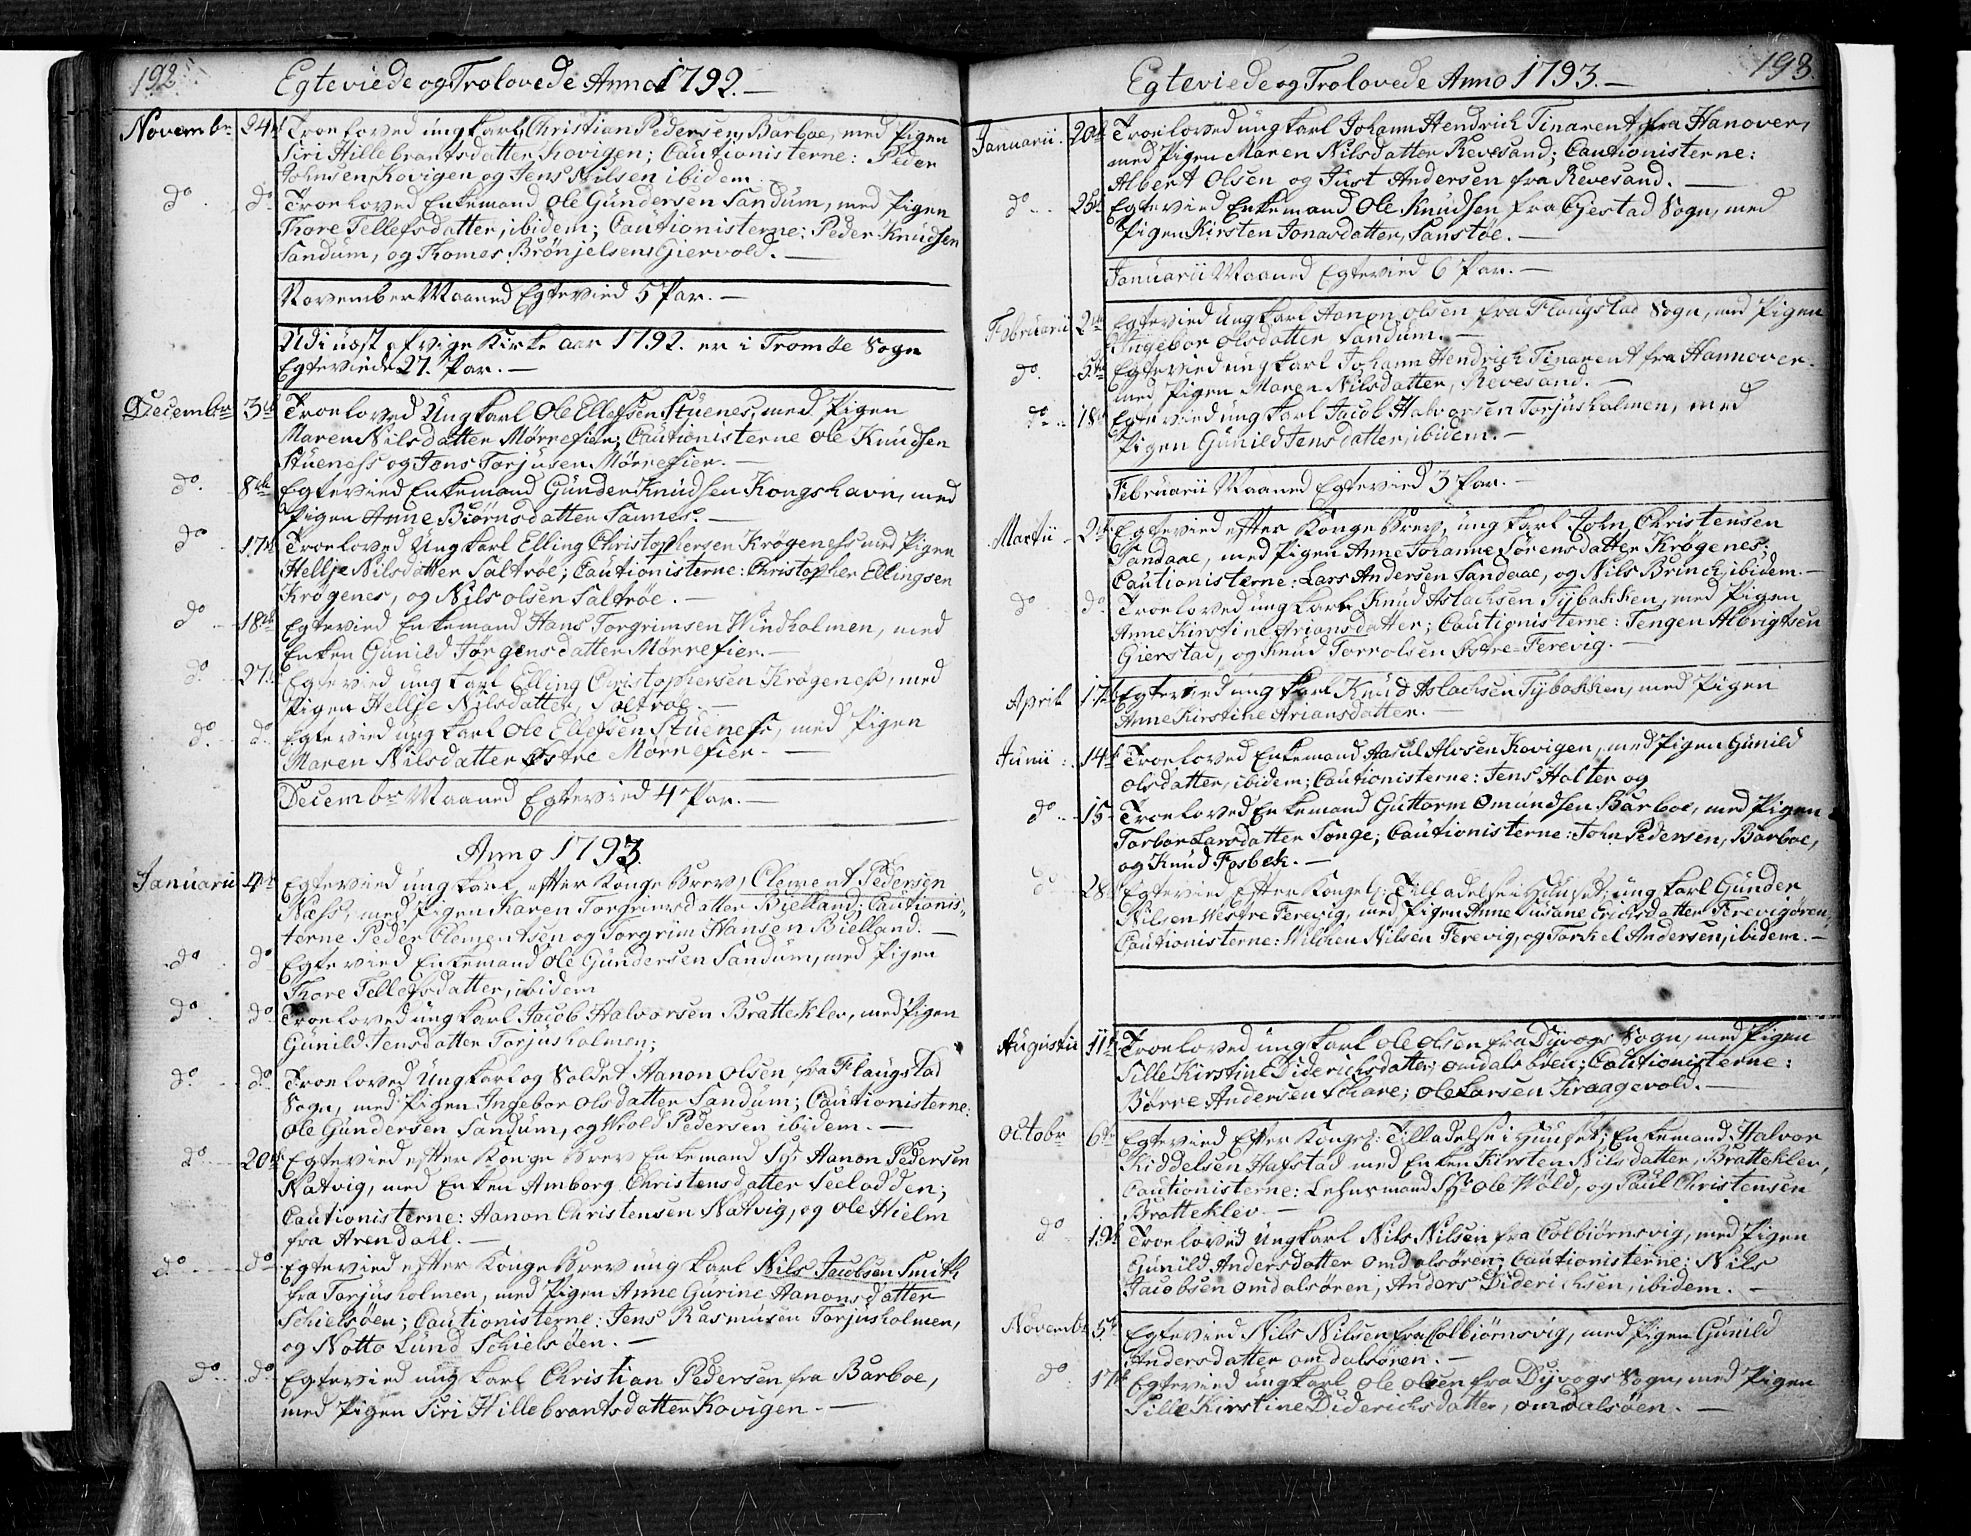 192
Egteviede og Trolovede Anno 1792.
Novembr. 24d Troeloved ung karl Christian Pedersen Barboe, med Pigen
Siri Hillebrantsdatter Kovigen; Cautionisterne: Peder
Johnsen Kovigen og Jens Nilsen ibidem.
do. do. Troeloved Enkemand Ole Gundersen Sandum, med Pigen
Thore Tellefsdatter, ibidem; Cautionisterne: Peder Knudsen
Sandum, og Thomes Brønjelsen Giervold.
November Maaned Egtevied 5 Par.
Udi næst afvigte Kirke aar 1792. er i Tromøe Sogn
Egteviede 27. Par.
Decembr 3d Troeloved Ung karl Ole Ellefsen Stuenes, med Pigen
Maren Nilsdatter Mørrefier; Cautionisterne Ole Knudsen
Stueness og Jens Torjusen Mørrefier.
do. 8de Egtevied Enkemand Gunder Knudsen Kongshavn, med
Pigen Anne Biørnsdatter Sannes.
do 17d Troeloved Ung karl Elling Christophersen Krøgeness med Pigen
Hellje Nilsdatter Saltrøe; Cautionisterne: Christopher Ellingsen
Krøgenes, og Nils Olsen Saltrøe.
do 18de Egtevied Enkemand Hans Torgrimsen Windholmen, med
Enken Gunild Jørgensdatter Mørrefier.
do. 27. Egtevied ung karl Elling Christophersen Krøgeness, med
Pigen Hellje Nilsdatter, Saltrøe.
do. do. Egtevied ung karl Ole Ellefsen Stueness, med Pigen
Maren Nilsdatter Østre Mørrefier.
Decembr Maaned Egtevied 4 Par.
Anno 1793.
Januarii 4de Egtevied ung karl, efter Konge Brev, Clement Pedersen
Næss, med Pigen Karen Torgrimsdatter Bielland; Cautionis-
terne Peder Clementsen og Torgrim Hansen Bielland.
do. do. Egtevied Enkemand Ole Gundersen Sandum, med Pigen
Thore Tellefsdatter, ibidem
do. do. Troeloved ung karl Jacob Halvorsen Bratteklev, med Pigen
Gunild Jensdatter Torjusholmen;
do. do. Troeloved Ung karl og Soldat Aanon Olsen fra Flaugstad
Sogn, med Pigen Ingebor Olsdatter Sandum; Cautionisterne:
Ole Gundersen Sandum, og Wold Pedersen ibidem.
do. 20d Egtevied efter Konge Brev Enkemand Sr. Aanon Pedersen
Natvig, med Enken Amborg Christensdatter Seeladden;
Cautionisterne: Aanon Christensen Natvig, og Ole Hielm
fra Arendahl.
do. do. Egtevied efter Konge Brev ung karl Nils Jacobsen Smith
fra Torjusholmen, med Pigen Anne Gurine Aanonsdatter
Schielsøen; Cautionisterne: Jens Rasmusen Torjusholmen,
og Notto Lund Schielsøen.
do. do. Egtevied ung karl Christian Pedersen fra Barboe,
med Pigen Siri Hillebrantsdatter Kovigen.
193
Egteviede og Trolovede Anno 1793.
Januarii. 20de Troeloved ung karl Johann Hendrich Tinarent, fra Hanover,
med Pigen Maren Nilsdatter Revesand; Cautionisterne:
Albert Olsen og Just Andersen fra Revesand.
do. Egtevied Enkemand Ole Knudsen fra Ojestad Sogn, med
Pigen Kirsten Jonasdatter, Sanstøe.
Januarii Maaned Egtevied 6 Par.
Februarii 2den Egtevied ung karl Aanon Olsen fra Flaugstad Sogn, med Pigen
Ingebor Olsdatter Sandum.
do. 5te Egtevied ung karl Johann Hendrich Tinarent fra Hannover.
med Pigen Maren Nilsdatter, Revesand.
do. 18d Egtevied ung karl Jacob Halvorsen Torjusholmen, med
Pigen Gunild Jensdatter, ibidem.
Februarii Maaned Egtevied 3 Par.
Martii 2d. Egtevied efter Konge Brev, ung karl John Christensen
Sandaae, med Pigen Anne Johanne Sørensdatter Krøgenes;
Cautionisterne: Lars Andersen Sandaae, og Nils Brinch, ibidem.
do do. Troeloved ung karl Knud Aslachsen Tybakken, med Pigen
Anne Kirstine Ariansdatter; Cautionisterne: Tengen Albrigtsen
Gierstad, og Knud Torrolsen Østre-Ferevig.
April 17d Egtevied ung karl Knud Aslachsen Tybakken, med Pigen
Anne Kirstine Ariansdatter.
Junii 14d Troeloved Enkemand Aasul Alvsen Kovigen, med Pigen Gunild
Olsdatter, ibidem; Cautionisterne: Jens Holter og
do. 15 Troeloved Enkemand Guttorm Omundsen Barboe, med Pigen
Torbor Larsdatter Songe; Cautionisterne: John Pedersen, Barboe,
og Knud Fosbek.
do 28 Egtevied efter Kongel: Tilladelse i Huuset; ung karl Gunder
Nilsen Westre Ferevig, med Pigen Anne Susane Erichsdatter Ferevigøren;
Cautionisterne: Wilchen Nilsen Ferevig, og Torkel Andersen, ibidem.
Augustii 11t Troeloved ung karl Ole Olsen fra Dyvogs Sogn, med Pigen
Sille Kirstine Diderichsdatter, Omdalsøren; Cautionisterne:
Børre Andersen Schare; Ole Larsen Kraagevold.
Octobr 6te Egtevied Efter Kongel: Tilladelse i Huuset; Enkemand Halvor
Kiddelsen Hafstad med Enken Kirsten Nilsdatter, Bratteklev,
Cautionisterne: Lehnsmand Sr. Ole Wold, og Paul Christensen
Bratteklev.
do 19d Troeloved Ung karl Nils Nilsen fra Colbiørnsvig, med Pigen
Gunild Andersdatter Omdalsøren; Cautionisterne: Nils
Jacobsen Omdalsøren, Anders Diderichsen, ibidem.
Novembr 5t Egtevied Nils Nilsen fra Colbiørnsvig, med Pigen Gunild
Andersdatter Omdalsøren.
do. 17d Egtevied ung karl Ole Olsen fra Dyvogs Sogn, med Pigen
Sille Kirstine Diderichsdatter, Omdalsøen.